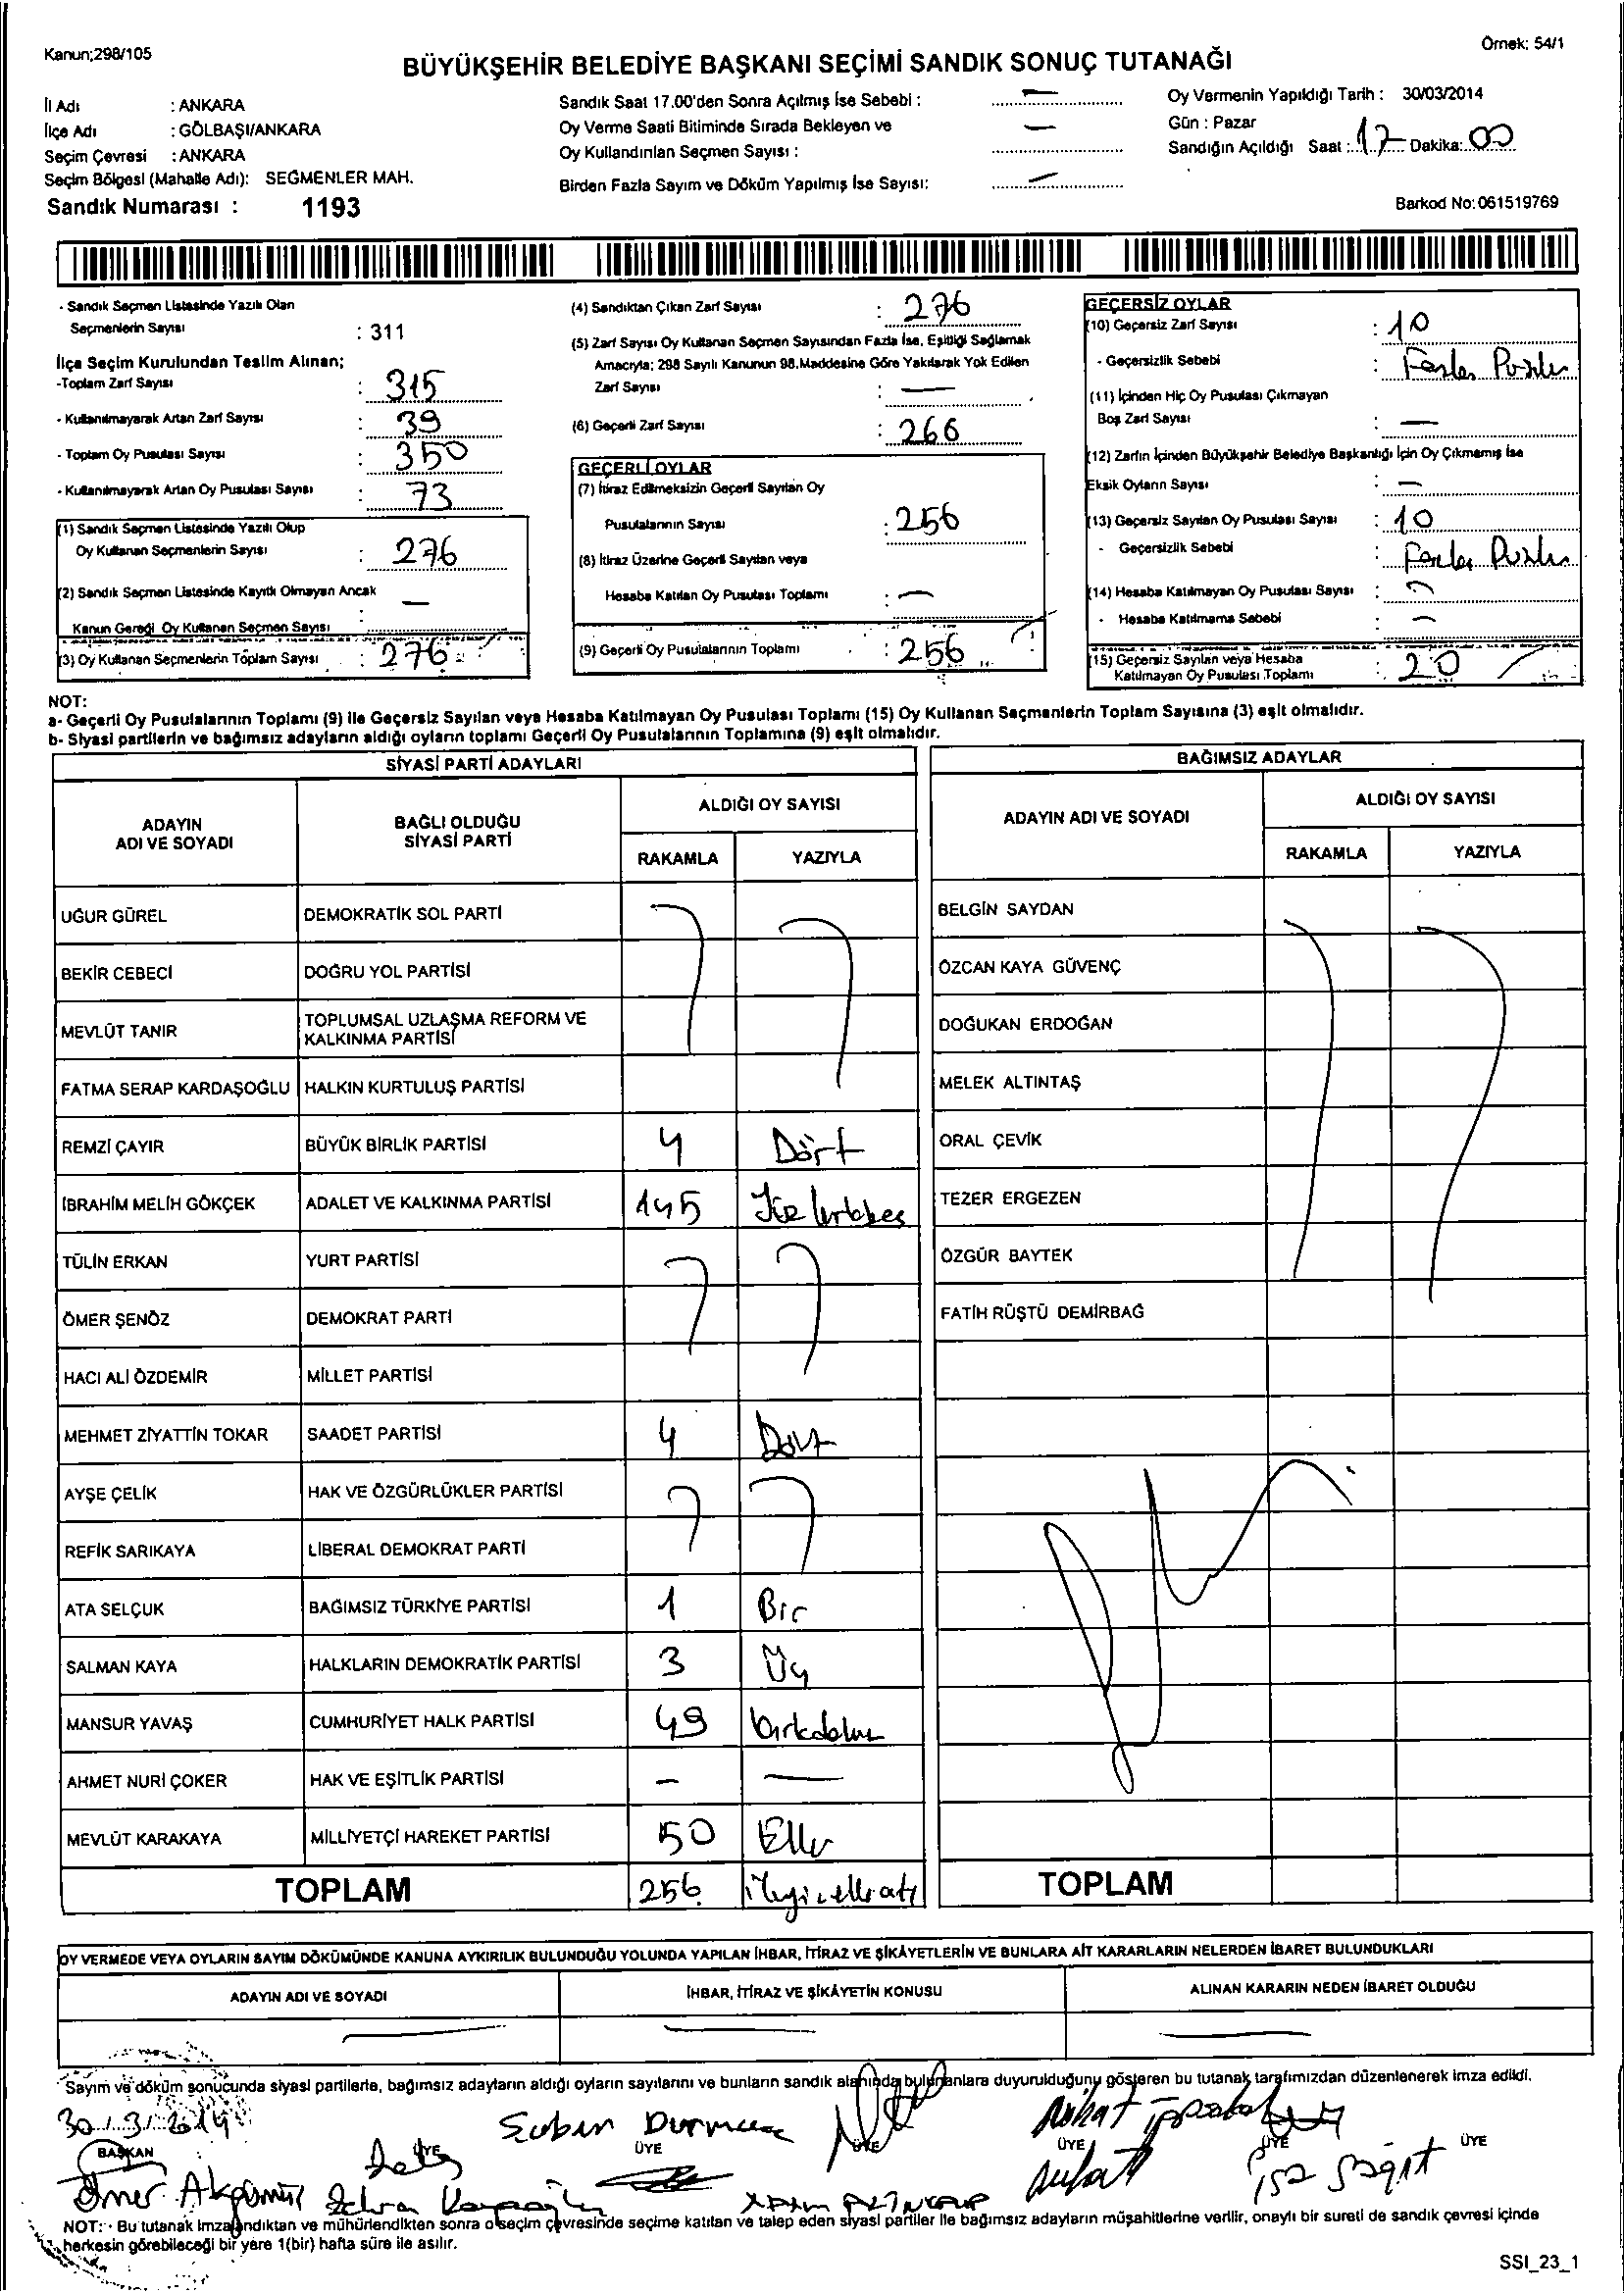 Kanun;298/105
Örnek: 54/1
BÜYÜKŞEHİR BELEDİYE BAŞKANI SEÇİMİ SANDIK SONUÇ TUTANAĞI
İl Adı : ANKARA
İlçe Adı : GÖLBAŞI/ANKARA
Seçim Çevresi : ANKARA
Seçim Bölgesi (Mahalle Adı): SEĞMENLER MAH.
Sandık Numarası : 1193
Sandık Saat 17.00'den Sonra Açılmış İse Sebebi : —
Oy Verme Saati Bitiminde Sırada Bekleyen ve
Oy Kullandırılan Seçmen Sayısı : —
Birden Fazla Sayım ve Döküm Yapılmış İse Sayısı: —
Oy Vermenin Yapıldığı Tarih : 30/03/2014
Gün : Pazar
Sandığın Açıldığı Saat : 17 Dakika: 00
Barkod No: 061519769
- Sandık Seçmen Listesinde Yazılı Olan
Seçmenlerin Sayısı : 311
İlçe Seçim Kurulundan Teslim Alınan;
-Toplam Zarf Sayısı : 315
- Kullanılmayarak Artan Zarf Sayısı : 39
- Toplam Oy Pusulası Sayısı : 350
- Kullanılmayarak Artan Oy Pusulası Sayısı : 73
(1) Sandık Seçmen Listesinde Yazılı Olup
Oy Kullanan Seçmenlerin Sayısı : 276
(2) Sandık Seçmen Listesinde Kayıtlı Olmayan Ancak
Kanun Gereği Oy Kullanan Seçmen Sayısı : —
(3) Oy Kullanan Seçmenlerin Toplam Sayısı : 276
(4) Sandıktan Çıkan Zarf Sayısı : 276
(5) Zarf Sayısı Oy Kullanan Seçmen Sayısından Fazla İse, Eşitliği Sağlamak
Amacıyla; 298 Sayılı Kanunun 98.Maddesine Göre Yakılarak Yok Edilen
Zarf Sayısı : —
(6) Geçerli Zarf Sayısı : 266
GEÇERLİ OYLAR
(7) İtiraz Edilmeksizin Geçerli Sayılan Oy
Pusulalarının Sayısı : 256
(8) İtiraz Üzerine Geçerli Sayılan veya
Hesaba Katılan Oy Pusulası Toplamı : —
(9) Geçerli Oy Pusulalarının Toplamı : 256
GEÇERSİZ OYLAR
(10) Geçersiz Zarf Sayısı : 10
- Geçersizlik Sebebi :
(11) İçinden Hiç Oy Pusulası Çıkmayan
Boş Zarf Sayısı : —
(12) Zarfın İçinden Büyükşehir Belediye Başkanlığı İçin Oy Çıkmamış İse
Eksik Oyların Sayısı : —
(13) Geçersiz Sayılan Oy Pusulası Sayısı : 10
- Geçersizlik Sebebi :
(14) Hesaba Katılmayan Oy Pusulası Sayısı : —
- Hesaba Katılmama Sebebi : —
(15) Geçersiz Sayılan veya Hesaba
Katılmayan Oy Pusulası Toplamı : 20
NOT:
a- Geçerli Oy Pusulalarının Toplamı (9) ile Geçersiz Sayılan veya Hesaba Katılmayan Oy Pusulası Toplamı (15) Oy Kullanan Seçmenlerin Toplam Sayısına (3) eşit olmalıdır.
b- Siyasi partilerin ve bağımsız adayların aldığı oyların toplamı Geçerli Oy Pusulalarının Toplamına (9) eşit olmalıdır.
SİYASİ PARTİ ADAYLARI
ADAYIN ADI VE SOYADI BAĞLI OLDUĞU SİYASİ PARTİ ALDIĞI OY SAYISI
RAKAMLA YAZIYLA
UĞUR GÜREL DEMOKRATİK SOL PARTİ
BEKİR CEBECİ DOĞRU YOL PARTİSİ
MEVLÜT TANIR TOPLUMSAL UZLAŞMA REFORM VE KALKINMA PARTİSİ
FATMA SERAP KARDAŞOĞLU HALKIN KURTULUŞ PARTİSİ
REMZİ ÇAYIR BÜYÜK BİRLİK PARTİSİ 4 Dört
İBRAHİM MELİH GÖKÇEK ADALET VE KALKINMA PARTİSİ 145
TÜLİN ERKAN YURT PARTİSİ
ÖMER ŞENÖZ DEMOKRAT PARTİ
HACI ALİ ÖZDEMİR MİLLET PARTİSİ
MEHMET ZİYATTİN TOKAR SAADET PARTİSİ 4 Dört
AYŞE ÇELİK HAK VE ÖZGÜRLÜKLER PARTİSİ
REFİK SARIKAYA LİBERAL DEMOKRAT PARTİ
ATA SELÇUK BAĞIMSIZ TÜRKİYE PARTİSİ 1 Bir
SALMAN KAYA HALKLARIN DEMOKRATİK PARTİSİ 3 Üç
MANSUR YAVAŞ CUMHURİYET HALK PARTİSİ 49
AHMET NURİ ÇOKER HAK VE EŞİTLİK PARTİSİ — —
MEVLÜT KARAKAYA MİLLİYETÇİ HAREKET PARTİSİ 50 Elli
TOPLAM 256
BAĞIMSIZ ADAYLAR
ADAYIN ADI VE SOYADI ALDIĞI OY SAYISI
RAKAMLA YAZIYLA
BELGİN SAYDAN
ÖZCAN KAYA GÜVENÇ
DOĞUKAN ERDOĞAN
MELEK ALTINTAŞ
ORAL ÇEVİK
TEZER ERGEZEN
ÖZGÜR BAYTEK
FATİH RÜŞTÜ DEMİRBAĞ
TOPLAM
OY VERMEDE VEYA OYLARIN SAYIM DÖKÜMÜNDE KANUNA AYKIRILIK BULUNDUĞU YOLUNDA YAPILAN İHBAR, İTİRAZ VE ŞİKÂYETLERİN VE BUNLARA AİT KARARLARIN NELERDEN İBARET BULUNDUKLARI
ADAYIN ADI VE SOYADI İHBAR, İTİRAZ VE ŞİKÂYETİN KONUSU ALINAN KARARIN NEDEN İBARET OLDUĞU
— — —
Sayım ve döküm sonucunda siyasi partilerle, bağımsız adayların aldığı oyların sayılarını ve bunların sandık alanında bulunanlara duyurulduğunu gösteren bu tutanak tarafımızdan düzenlenerek imza edildi.
30/3/2014
BAŞKAN ÜYE ÜYE ÜYE ÜYE ÜYE ÜYE
NOT: - Bu tutanak imzalandıktan ve mühürlendikten sonra o seçim çevresinde seçime katılan ve talep eden siyasi partiler ile bağımsız adayların müşahitlerine verilir, onaylı bir sureti de sandık çevresi içinde
herkesin görebileceği bir yere 1(bir) hafta süre ile asılır.
SSI_23_1